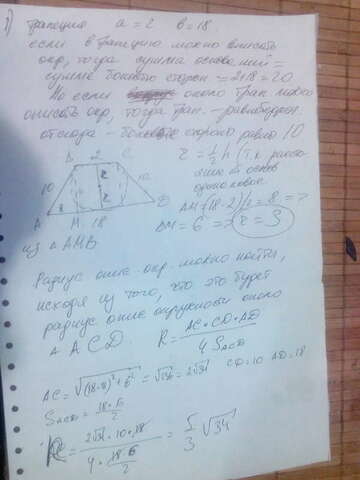 1) трапеция a = 2 b = 18
если в трапецию можно вписать
окр, тогда сумма оснований =
сумме боковых сторон = 2+18 = 20
Но если около трап можно
описать окр, тогда трап. - равнобедрен.
отсюда - боковая сторона равна 10
r = 1/2 h (т.к. расстояние
B 2 C
10 r 10
r
A 8 M 18 D
из △AMB
AM = (18-2)/2 = 8 =>
BM = 6 => r = 3
Радиус опис. окр. можно найти,
исходя из того, что это будет
радиус опис окружности около
△ACD. R = AC·CD·AD / 4 SACD
AC = √((18-8)²+6²) = √136 = 2√34 CD=10 AD=18
SACD = 18·6/2
R = 2√34·10·18 / 4·18·6/2 = 5/3 √34